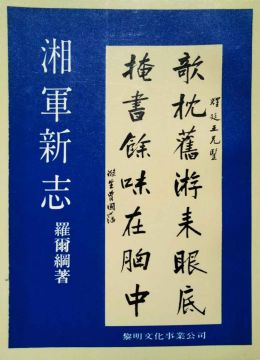 湘軍新志
羅爾綱著
欹枕舊游来眼底
掩書餘味在胸中
滌生曾國藩
黎明文化事業公司